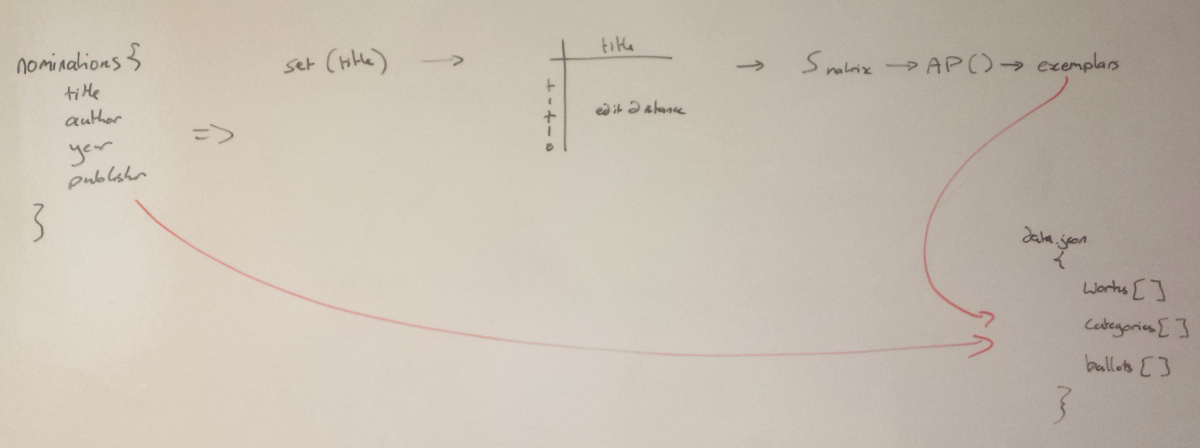 nominations {
title
author
year
publisher
}
=>
set (title)
→
title
title
edit distance
→ Smatrix → AP() → exemplars
data.json
{
works [ ]
categories [ ]
ballots [ ]
}